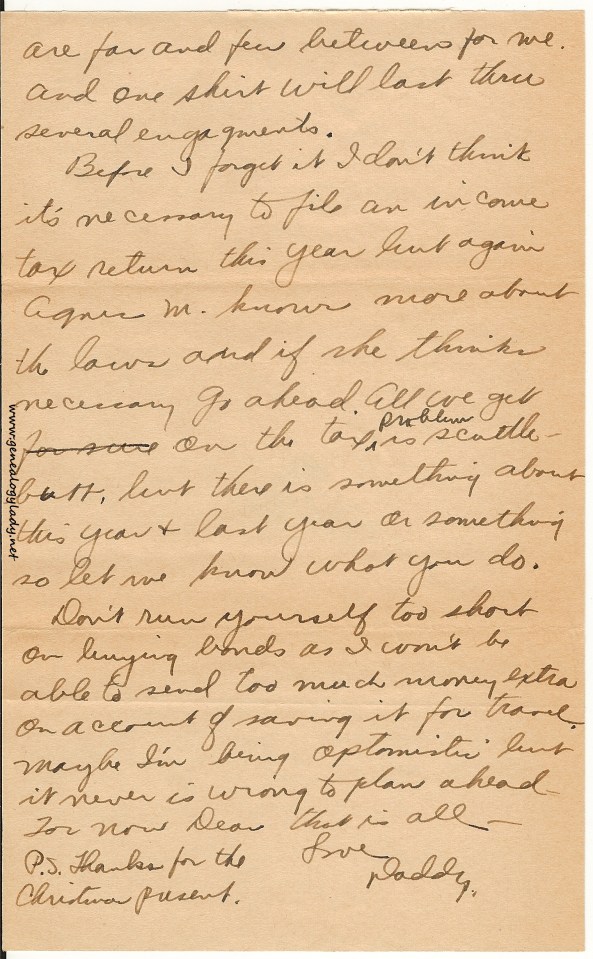 are far and few between for me.
And one shirt will last thru
several engagments.
Before I forget it I don't think
it's necessary to file an income
tax return this year but again
Agnes M. knows more about
the laws and if she thinks
necessary go ahead. All we get
problem
for sure on the tax, is scuttle-
butt, but there is something about
this year + last year or something
so let me know what you do.
Don't run yourself too short
on buying bonds as I won't be
able to send too much money extra
on account of saving it for travel.
Maybe I'm being optomistic but
it never is wrong to plan ahead-
For now Dear that is all-
Love
Daddy.
P.S. Thanks for the
Christmas present.
www.genealogylady.net